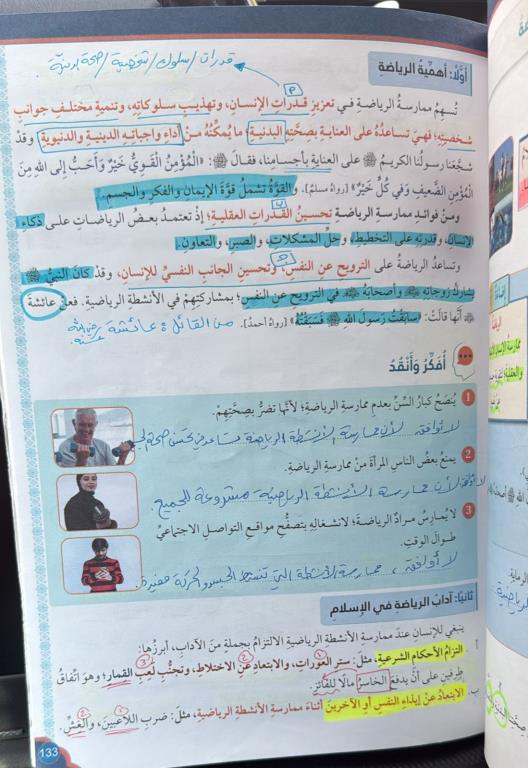 قدرات / سلوك / شخصية / صحة بدنية.
أوّلًا: أهمِّيةُ الرياضةِ
تُسهِمُ ممارسةُ الرياضةِ في تعزيزِ قدراتِ الإنسانِ، وتهذيبِ سلوكاتِهِ، وتنميةِ مختلفِ جوانبِ
شخصيتِهِ؛ فهيَ تساعدُهُ على العنايةِ بصحَّتِهِ البدنيةِ؛ ما يمكِّنُهُ منْ أداءِ واجباتِهِ الدينيةِ والدنيويةِ. وقدْ
شجَّعَنا رسولُنا الكريمُ ﷺ على العنايةِ بأجسامِنا، فقالَ ﷺ: «الْمُؤْمِنُ الْقَوِيُّ خَيْرٌ وَأَحَبُّ إلى اللهِ مِنَ
الْمُؤْمِنِ الضَّعيفِ وَفي كُلٍّ خَيْرٌ» [رواهُ مسلمٌ]. والقوَّةُ تشملُ قوَّةَ الإيمانِ والفكرِ والجسمِ.
ومنْ فوائدِ ممارسةِ الرياضةِ تحسينُ القدراتِ العقليةِ؛ إذْ تعتمدُ بعضُ الرياضاتِ على ذكاءِ
الإنسانِ، وقدرتِهِ على التخطيطِ، وحلِّ المشكلاتِ، والصبرِ، والتعاونِ.
وتساعدُ الرياضةُ على الترويحِ عنِ النفسِ، وتحسينِ الجانبِ النفسيِّ للإنسانِ، وقدْ كانَ النبيُّ ﷺ
يشاركُ زوجاتِهِ وأصحابَهُ في الترويحِ عنِ النفسِ؛ بمشاركتِهِمْ في الأنشطةِ الرياضيةِ. فعنْ عائشةَ
أنَّها قالَتْ: «سابَقْتُ رَسولَ اللهِ ﷺ فَسَبَقْتُهُ» [رواهُ أحمدُ]. من القائل: عائشة رضي الله عنها
أُفَكِّرُ وَأَنْقُدُ
1 يُنصَحُ كبارُ السِّنِّ بعدمِ ممارسةِ الرياضةِ؛ لأنَّها تضرُّ بصحَّتِهِمْ.
لا أوافقه لأن ممارسة الأنشطة الرياضية تساعد في تحسن صحة
2 يمنعُ بعضُ الناسِ المرأةَ منْ ممارسةِ الرياضةِ.
لا أوافق لأن ممارسة الأنشطة الرياضية مشروعة للجميع
3 لا يُمارِسُ مرادٌ الرياضةَ؛ لانشغالِهِ بتصفُّحِ مواقعِ التواصلِ الاجتماعيِّ
طوالَ الوقتِ.
لا أوافقه، ممارسة الأنشطة التي تنشط الجسم والحركة مفيدة
ثانيًا: آدابُ الرياضةِ في الإسلامِ
ينبغي للإنسانِ عندَ ممارسةِ الأنشطةِ الرياضيةِ الالتزامُ بجملةٍ منَ الآدابِ، أبرزُها:
أ . التزامُ الأحكامِ الشرعيةِ، مثلِ: سترِ العوراتِ، والابتعادِ عنِ الاختلاطِ، وتجنُّبِ لعبِ القمارِ؛ وهوَ اتفاقُ
طرفينِ على أنْ يدفعَ الخاسرُ مالًا للفائزِ.
ب. الابتعادُ عنْ إيذاءِ النفسِ أوِ الآخرينَ أثناءَ ممارسةِ الأنشطةِ الرياضيةِ، مثلِ: ضربِ اللاعبينَ، والغشِّ.
133